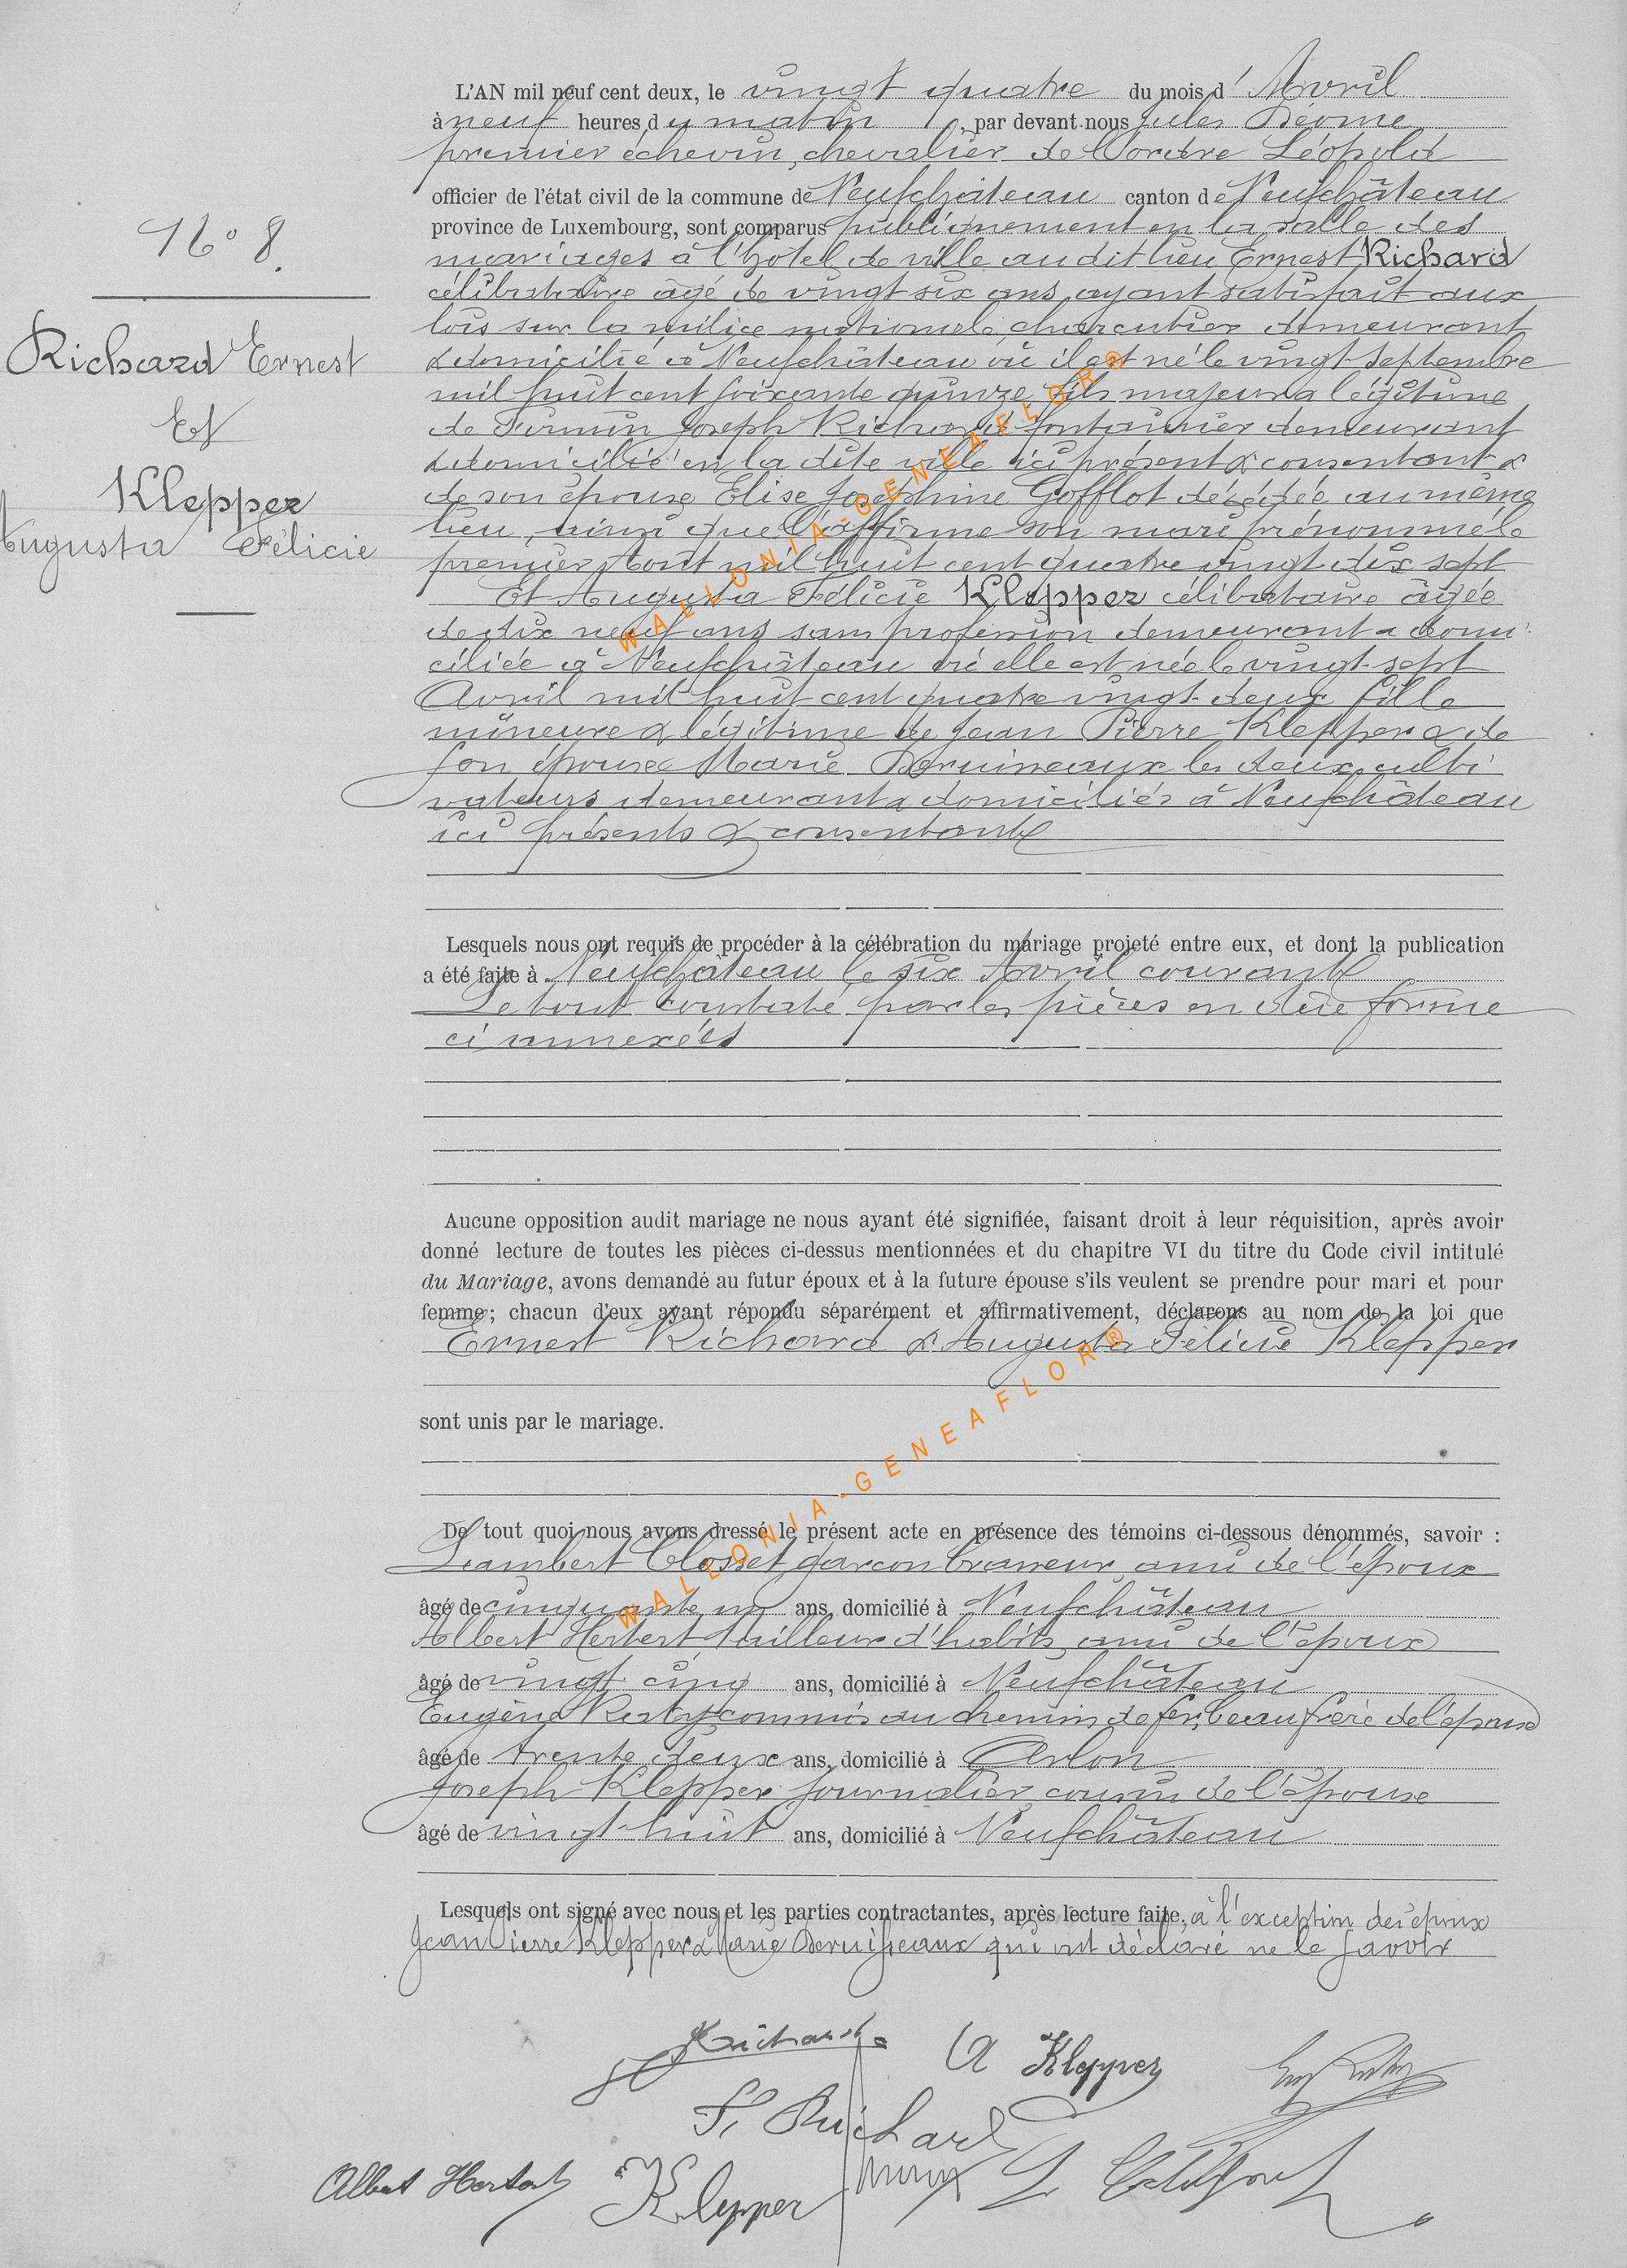 L'AN mil neuf cent deux, le vingt quatre du mois d'Avril
à neuf heures du matin, par devant nous Jules
premier échevin, chevalier de l'ordre Léopold
officier de l'état civil de la commune de Neufchâteau canton de Neufchâteau
province de Luxembourg, sont comparus publiquement en la salle des
N° 8.
mariages à l'hôtel de ville audit lieu Ernest Richard
célibataire âgé de vingt six ans ayant satisfait aux
lois sur la milice nationale, charcutier demeurant
Richard Ernest
& domicilié à Neufchâteau où il est né le vingt septembre
mil huit cent soixante quinze, fils majeur & légitime
Et
de Firmin Joseph Richard fontainier demeurant
& domicilié en la dite ville ici présent & consentant &
Klepper
de son épouse Elise Joséphine Gofflot décédée au même
lieu, ainsi que l'affirme son mari prénommé le
Augusta Félicie
premier Août mil huit cent quatre vingt dix sept
Et Augusta Félicie Klepper célibataire âgée
de dix neuf ans sans profession demeurant & domi
ciliée à Neufchâteau où elle est née le vingt-sept
Avril mil huit cent quatre vingt-deux fille
mineure & légitime de Jean Pierre Klepper & de
son épouse Marie Deruisseaux les deux culti
vateurs demeurant & domiciliés à Neufchâteau
ici présents & consentants
WALLONIA-GENEAFLOR®
Lesquels nous ont requis de procéder à la célébration du mariage projeté entre eux, et dont la publication
a été faite à Neufchâteau le six Avril courant
Le tout constaté par les pièces en due forme
ci annexées
Aucune opposition audit mariage ne nous ayant été signifiée, faisant droit à leur réquisition, après avoir
donné lecture de toutes les pièces ci-dessus mentionnées et du chapitre VI du titre du Code civil intitulé
du Mariage, avons demandé au futur époux et à la future épouse s'ils veulent se prendre pour mari et pour
femme; chacun d'eux ayant répondu séparément et affirmativement, déclarons au nom de la loi que
Ernest Richard & Augusta Félicie Klepper
sont unis par le mariage.
WALLONIA-GENEAFLOR®
De tout quoi nous avons dressé le présent acte en présence des témoins ci-dessous dénommés, savoir :
Lambert Closset, garçon brasseur, ami de l'époux
âgé de cinquante un ans, domicilié à Neufchâteau
Albert Herbert, tailleur d'habits, ami de l'époux
âgé de vingt cinq ans, domicilié à Neufchâteau
Eugène commis au chemin de fer, beau frère de l'épouse
âgé de trente deux ans, domicilié à Arlon
Joseph Klepper journalier, cousin de l'épouse
âgé de vingt-huit ans, domicilié à Neufchâteau
Lesquels ont signé avec nous et les parties contractantes, après lecture faite, à l'exception des époux
Jean Pierre Klepper & Marie Deruisseaux qui ont déclaré ne le savoir
Richard E A Klepper
F. Richard
Albert Klepper L.